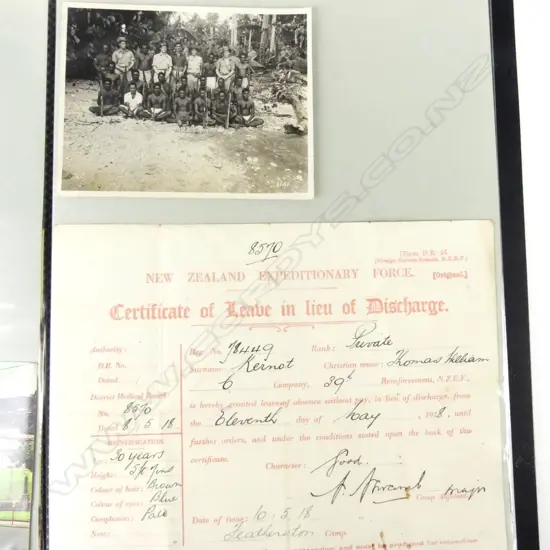 8570
[Form D.R. 
NEW ZEALAND EXPEDITIONARY FORCE. [Original.]
Certificate of Leave in lieu of Discharge.
Authority: Reg. No. 78449 Rank: Private
D.R. No. Surname: Kernot Christian name: Thomas
Dated C Company, 39th Reinforcements, N.Z.E.F.,
District Medical Board is hereby granted leave of absence without pay, in lieu of discharge, from
No. 8570 the Eleventh day of May, 1918, until
Dated 8.5.18 further orders, and under the conditions stated upon the back of this
certificate.
Age: 20 years Character: Good.
Height: 
Colour of hair: Brown Major
Colour of eyes: Blue Camp Adjutant
Complexion: Pale Date of issue: 10.5.18
Note: Featherston Camp.
WWW.CORDYS.CO.NZ